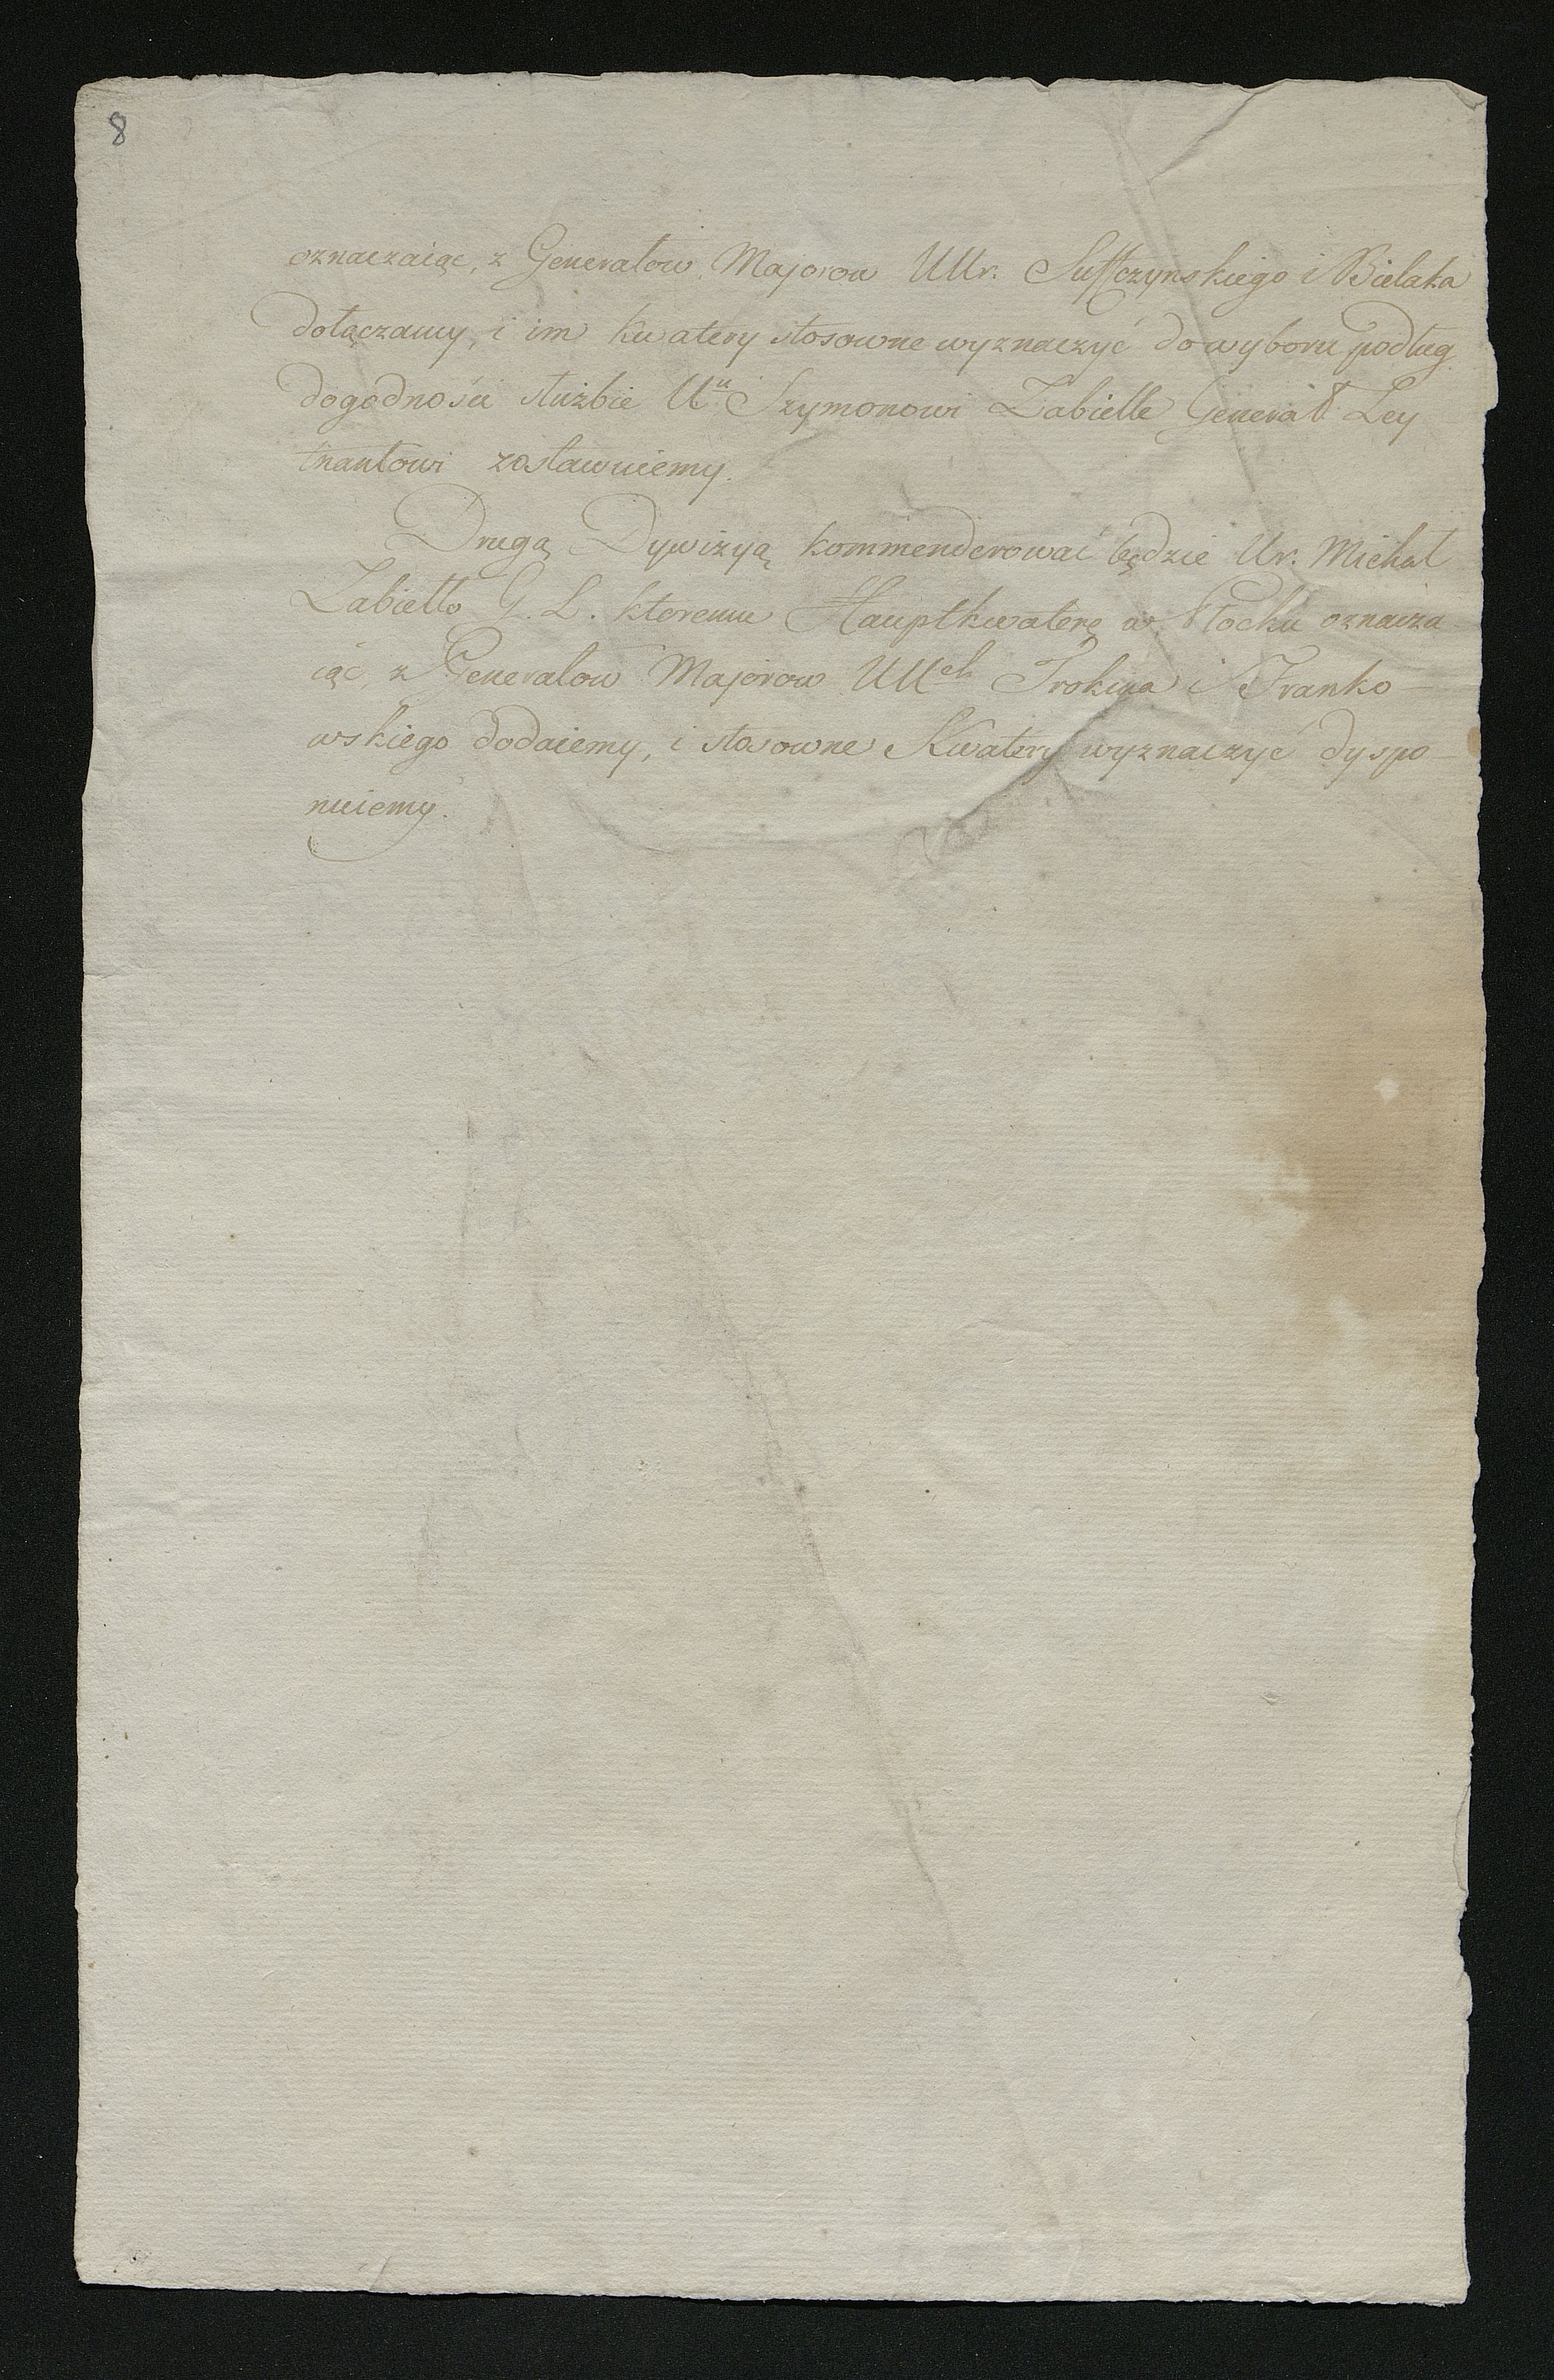 8
oznaczaiąc, z Generałow Majorow UUr. Suffczynskiego i Bielaka
dołączamy, i im kwatery stosowne wyznaczyć do wyboru podług
dogodnosci służbie Uu Szymonowi Zabielle Generał Ley
tnantowi zostawuiemy.
Drugą Dywizyią kommenderować będzie Ur. Michał
Zabiełło G. L. ktoremu Hauptkwaterę w Płocku oznacza
iąc, z Generalow Majorow UUch i Franko-
wskiego dodaiemy, i stosowne Kwatery wyznaczyć dyspo-
nuiemy.